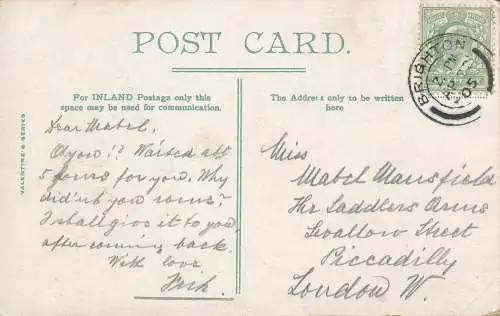 POST CARD.
For INLAND Postage only this
space may be used for communication.
The Address only to be written
here
VALENTINE'S SERIES
BRIGHTON
05
Dear Mabel.
O you!? Waited at
5 for you. Why
did'nt you come?
I shall give it to you,
after coming back.
With love
Miss
Mabel Mansfield
The Saddlers Arms
Swallow Street
Piccadilly
London W.